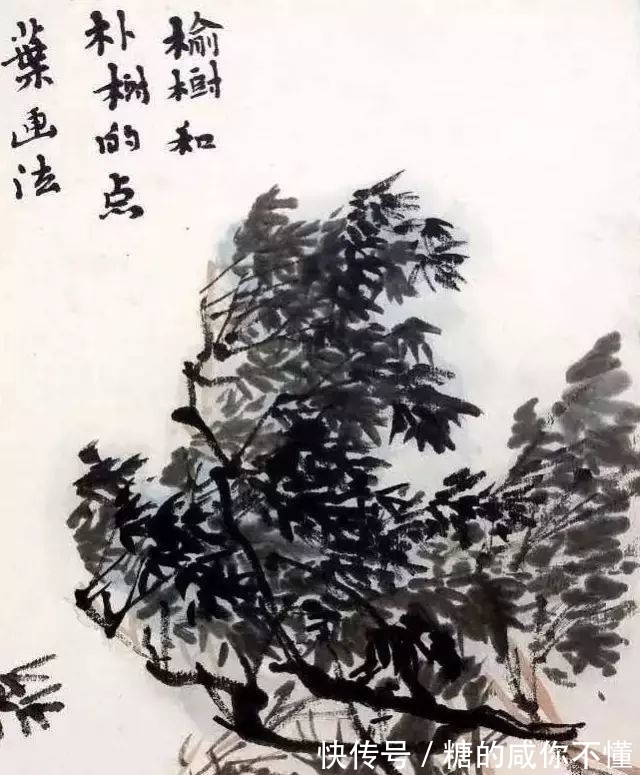 榆樹和
朴樹的点
葉画法
快传号/糖的咸你不懂